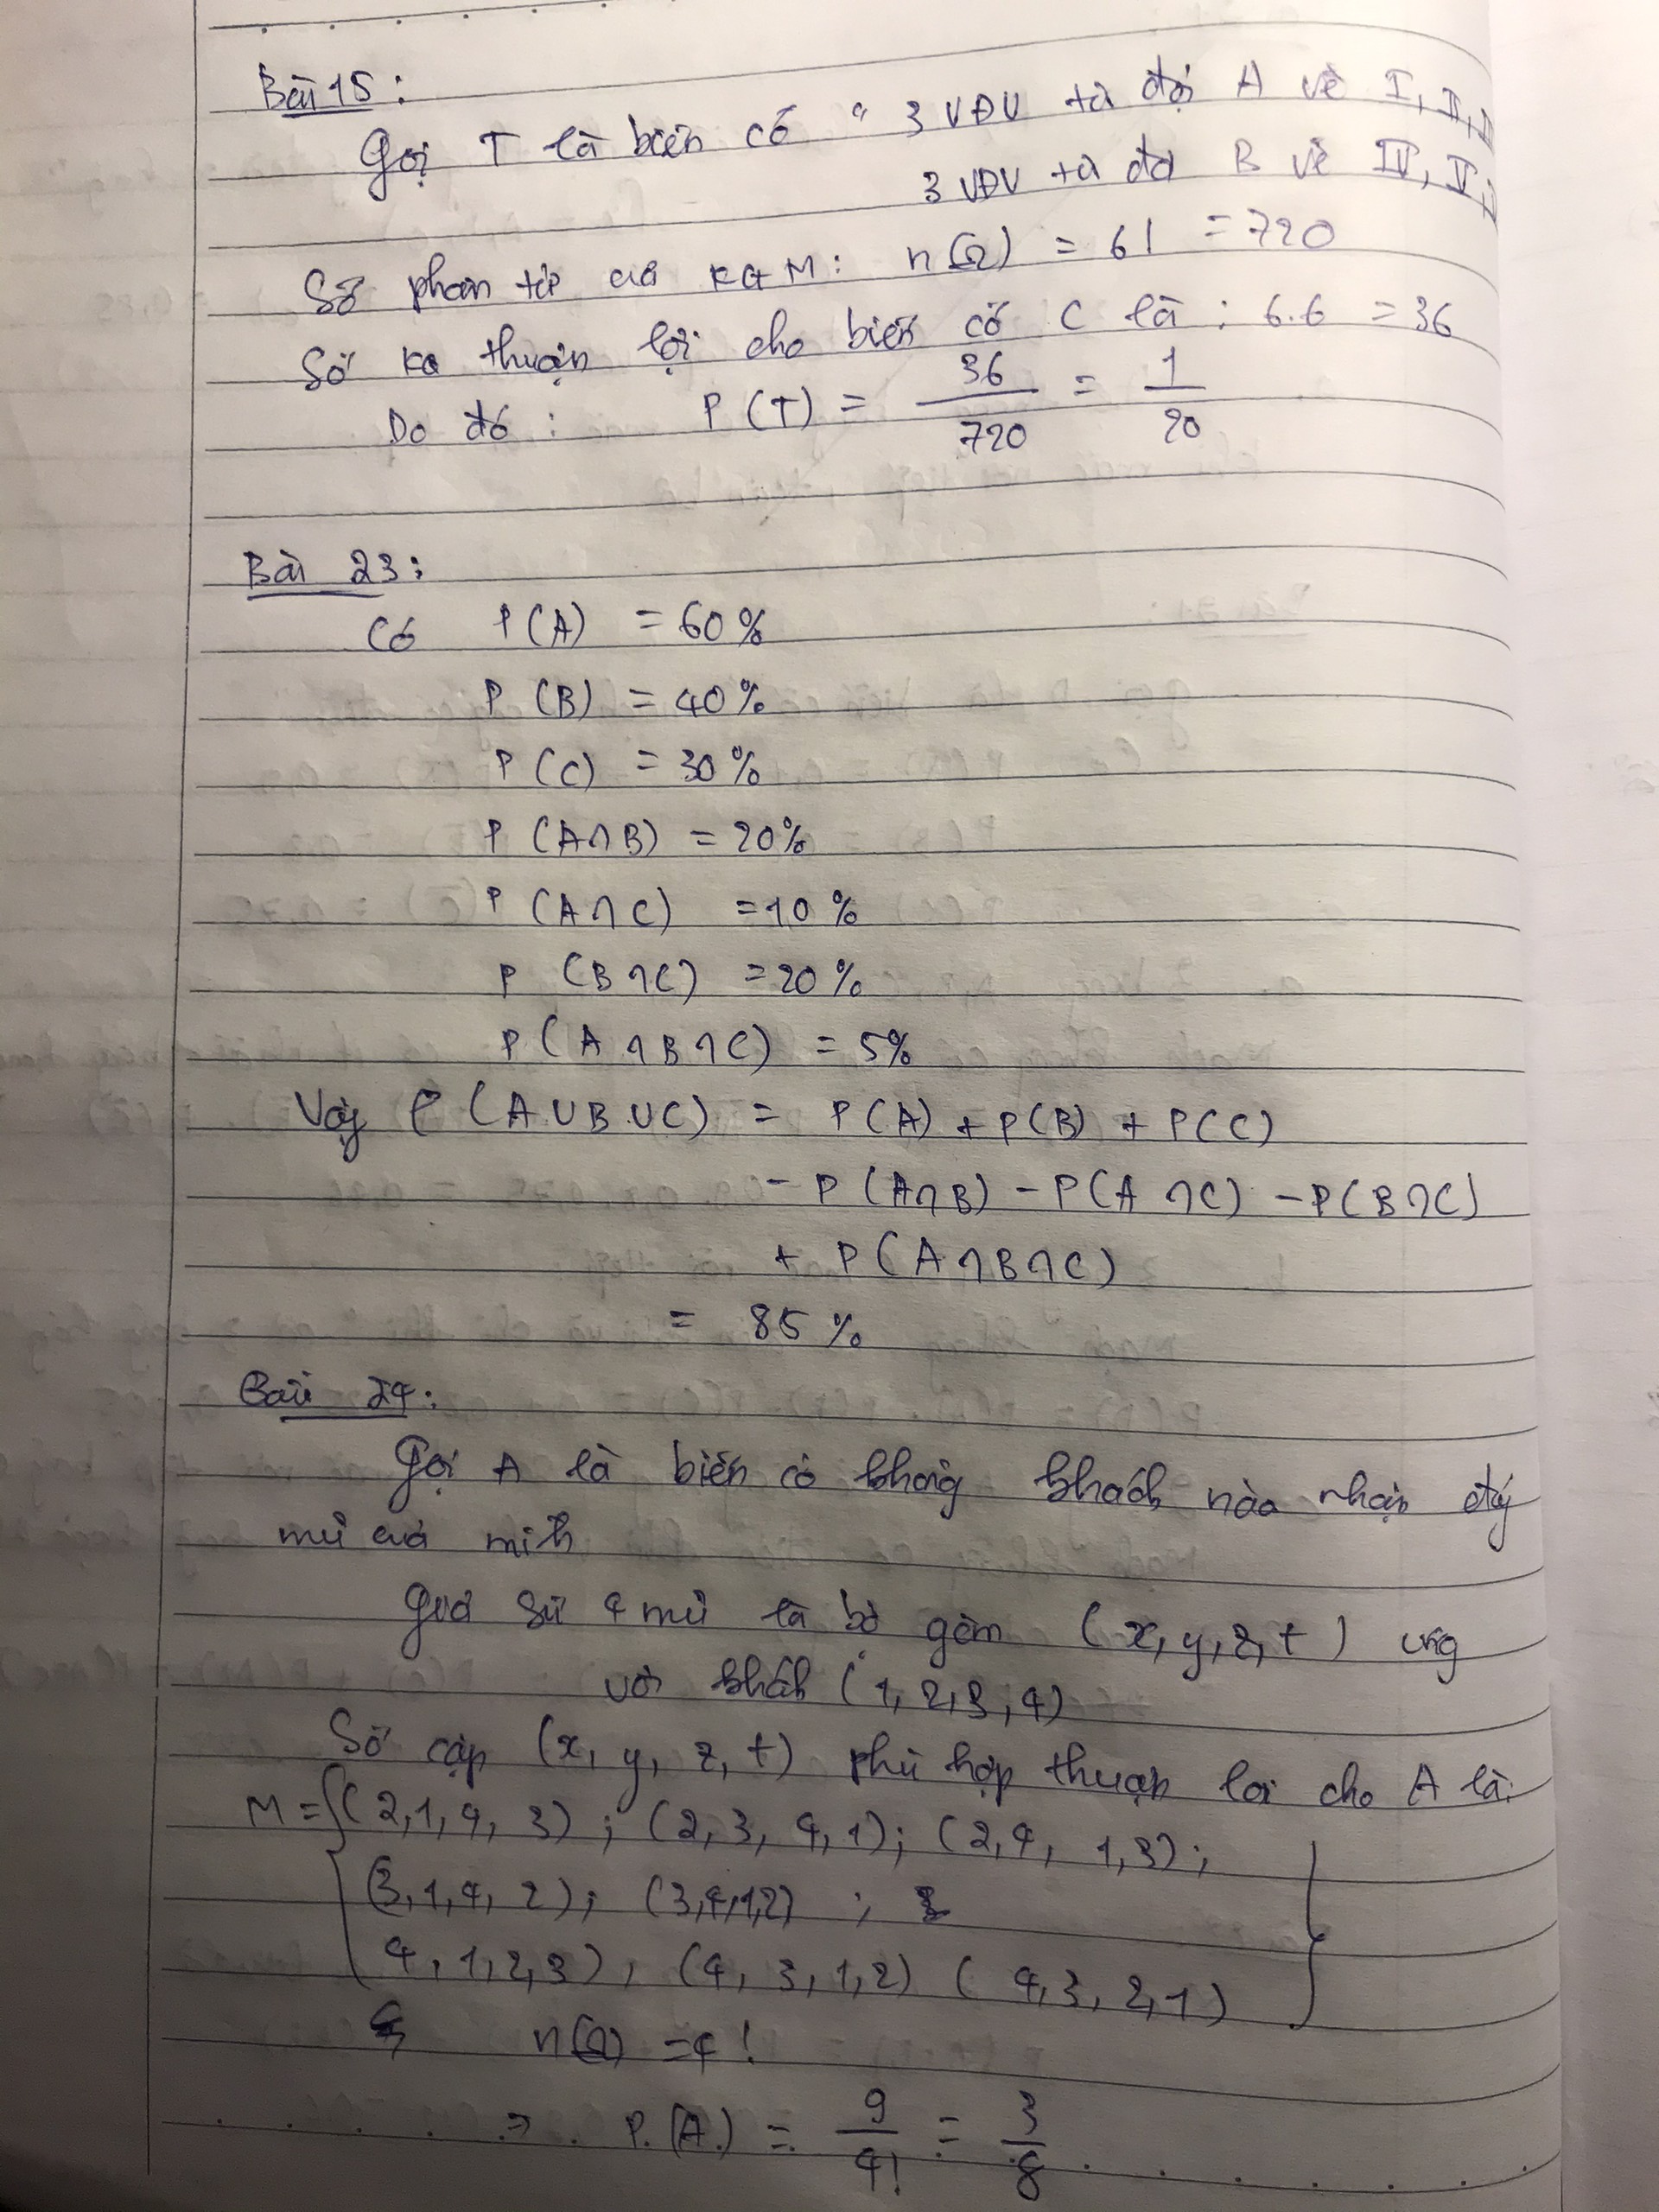 Bài 15:
Gọi T là biến cố " 3 VĐV từ đội A về I, II, III
3 VĐV từ đội B về IV, V,
Số phần tử của KGM: n(Ω) = 6! = 720
Số KQ thuận lợi cho biến cố C là: 6.6 = 36
Do đó: P(T) = 36/720 = 1/20
Bài 23:
Có P(A) = 60%
P(B) = 40%
P(C) = 30%
P(A∩B) = 20%
P(A∩C) = 10%
P(B∩C) = 20%
P(A∩B∩C) = 5%
Vậy P(A∪B∪C) = P(A) + P(B) + P(C)
- P(A∩B) - P(A∩C) - P(B∩C)
+ P(A∩B∩C)
= 85%
Bài 24:
Gọi A là biến cố không khách nào nhận đúng
mũ của mình
Giả sử 4 mũ là bộ gồm (x, y, z, t) ứng
với khách (1, 2, 3, 4)
Số cặp (x, y, z, t) phù hợp thuận lợi cho A là:
M = {(2,1,4,3); (2,3,4,1); (2,4,1,3);
(3,1,4,2); (3,4,1,2);
4,1,2,3), (4,3,1,2) (4,3,2,1)}
n(Ω) = 4!
=> P(A) = 9/4! = 3/8